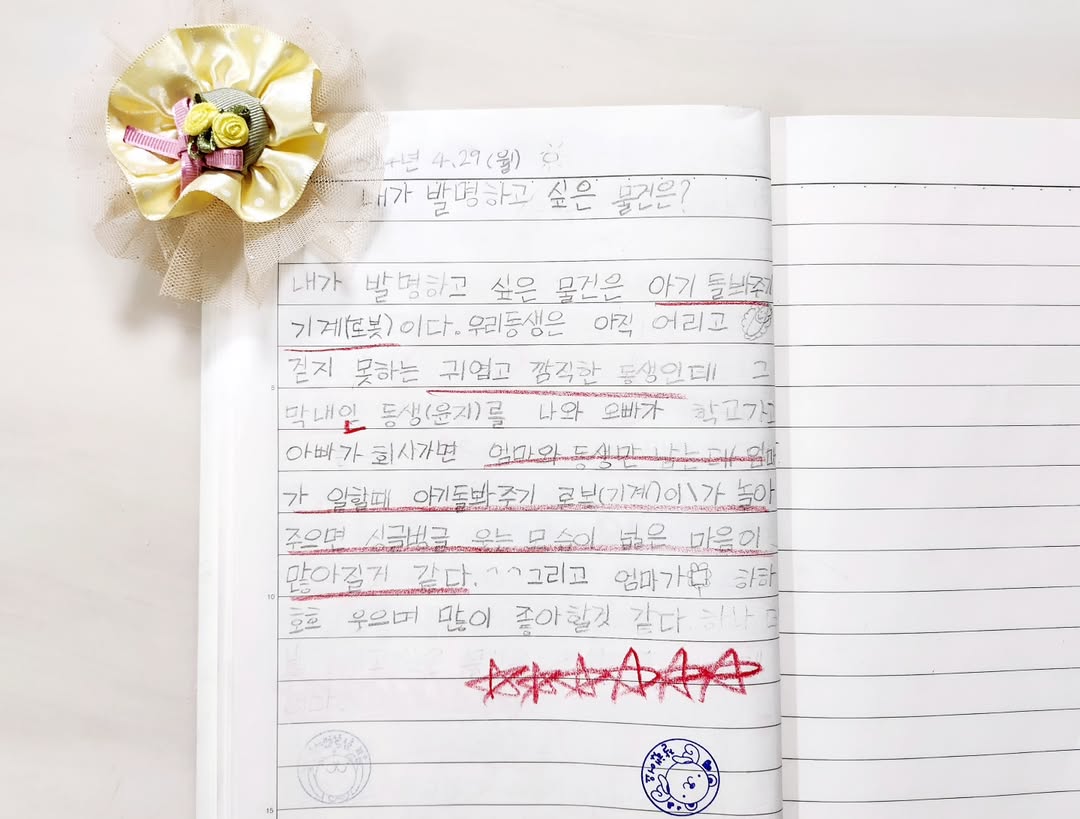 년 4.29(월)
내가 발명하고 싶은 물건은?
내가 발명하고 싶은 물건은 아기 돌봐주기
기계(로봇)이다. 우리동생은 아직 어리고
걷지 못하는 귀엽고 깜직한 동생인데 그
막내인 동생(윤지)를 나와 오빠가 학교가고
아빠가 회사가면 엄마와 동생만 남는데 엄마
가 일할때 아기돌봐주기 로보(기계)이\가 놀아
주으면 싱글벙글 웃는 모습이 넓은 마음이
많아질거 같다. ^^그리고 엄마가 하하
호호 웃으며 많이 좋아할것 같다. 하나 더
5
10
15